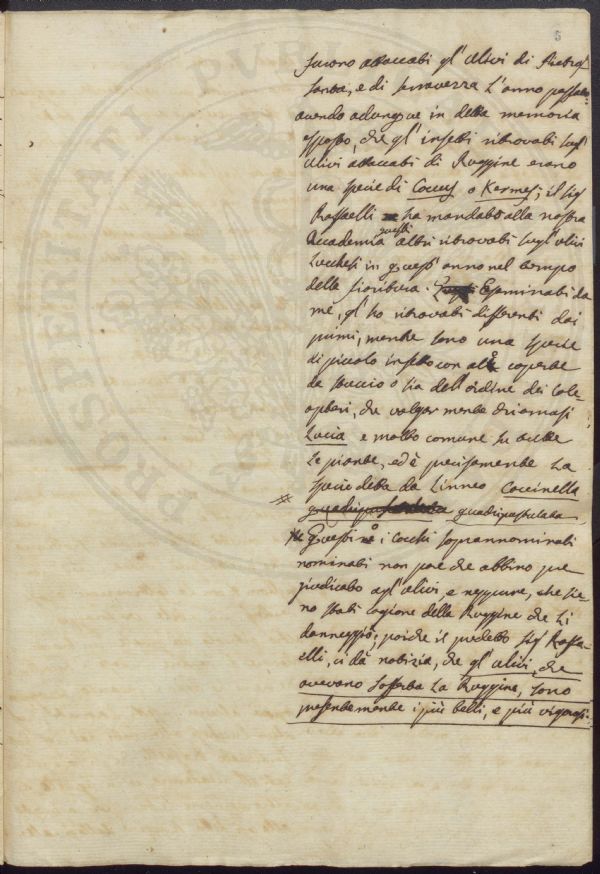 5
furono attaccati gl'ulivi di Pietra
santa, e di Seravezza l'anno passato
avendo adunque in detta memoria
esposto, che gl'insetti ritrovati sugl'
ulivi attaccati di Ruggine erano
una specie di Coccus o Kermes; il Sig
Raffaelli ha mandato alla nostra
Accademia questi altri ritrovati sugl'ulivi
Lucchesi in quest'anno nel tempo
della fioritura. Esaminati da
mè, gl'ho ritrovati differenti dai
primi, mentre sono una specie
di piccolo insetto con ali coperte
da stuccio o sia dell'ordine dei Cole
opteri, che volgarmente chiamasi
Lucia e molto comune su tutte
le piante, ed è precisamente la
specie detta da Linneo Coccinella
quadripustulata
Questi nè i Cocchi soprannominati
nominati non pare che abbino pre
giudicato agl'ulivi, e neppure, che sie-
no stati cagione della Ruggine che li
danneggiò; poiche il predetto Sig Raffa-
elli, ci dà notizia, che gl'ulivi, che
avevano sofferta la Ruggine, sono
presentemente i più belli, e più vigorosi
PROSPERITATI PUBLI